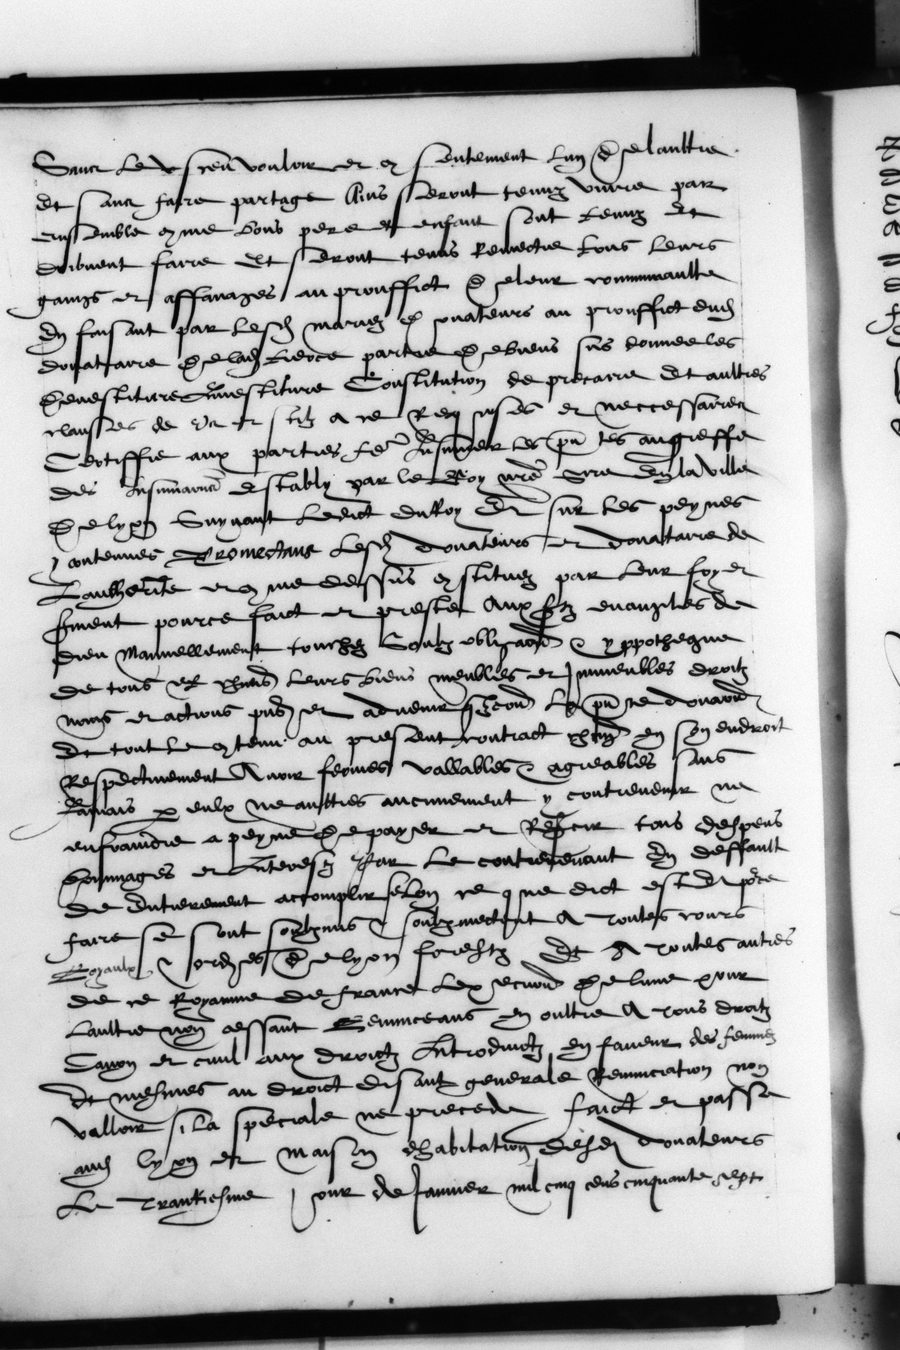 Sans le sceu vouloir et consentement lun de laultre
Et sans faire partage Ains seront tenuz vivre par
ensemble comme bons pere et enfans sont tenuz Et
doibvent faire Et seront tenus Remectre tous leurs
gaings et affanages au prouffict de leur communaulte
En faisant par lesd mariez et donateurs au prouffict dud
donataire de lad tierce partie de biens sus donnee les
devestiture Investiture Constitution de precaire Et aultres
clauses de et a ce Requises et neccessaires
Certiffie aux parties Insinuer les pntes au greffe
des Insinuations estably par le Roy nre Sire En la ville
de lyon Suyvant ledict du Roy Et sur les peynes
y contenues Promectans lesd donateurs et donataire de
lauthorite et comme dessus constituez par leur foy et
serment pource faict et preste Aux stz evangilles de
dieu Manuellement touchez Soubz obligation et yppotheque
de tous et chuns leurs biens meubles et Immeubles droitz
noms et actions pns et advenir la pnte donation
Et tout le contenu au present contract chun en son endroit
Respectivement Avoir fermes vallables et agreables sans
Jamais par eulx ne aultres aucunement y contrevenir ne
enfraindre a peyne de payer et tous despens
dommages et Interestz Par le contrevenant En deffault
de Entierement accomplir selon ce que dict est Et pour ce
faire se sont soubzmis et soubzmectent A toutes cours
Royaulx et de lyon forestz Et A toutes autres
de ce Royaume de france Lexecution de lune pour
laultre non cessant Renunceans En oultre A tous droitz
Canon et civil aux droictz Introduictz en faveur des femmes
Et mesmes au droict disant generale Renunciation non
valloir si la speciale ne precede faict et passe
aud lyon et maison dhabitation desd donateurs
Le Trantiesme Jour de Janvier mil cinq cens cinquante sept